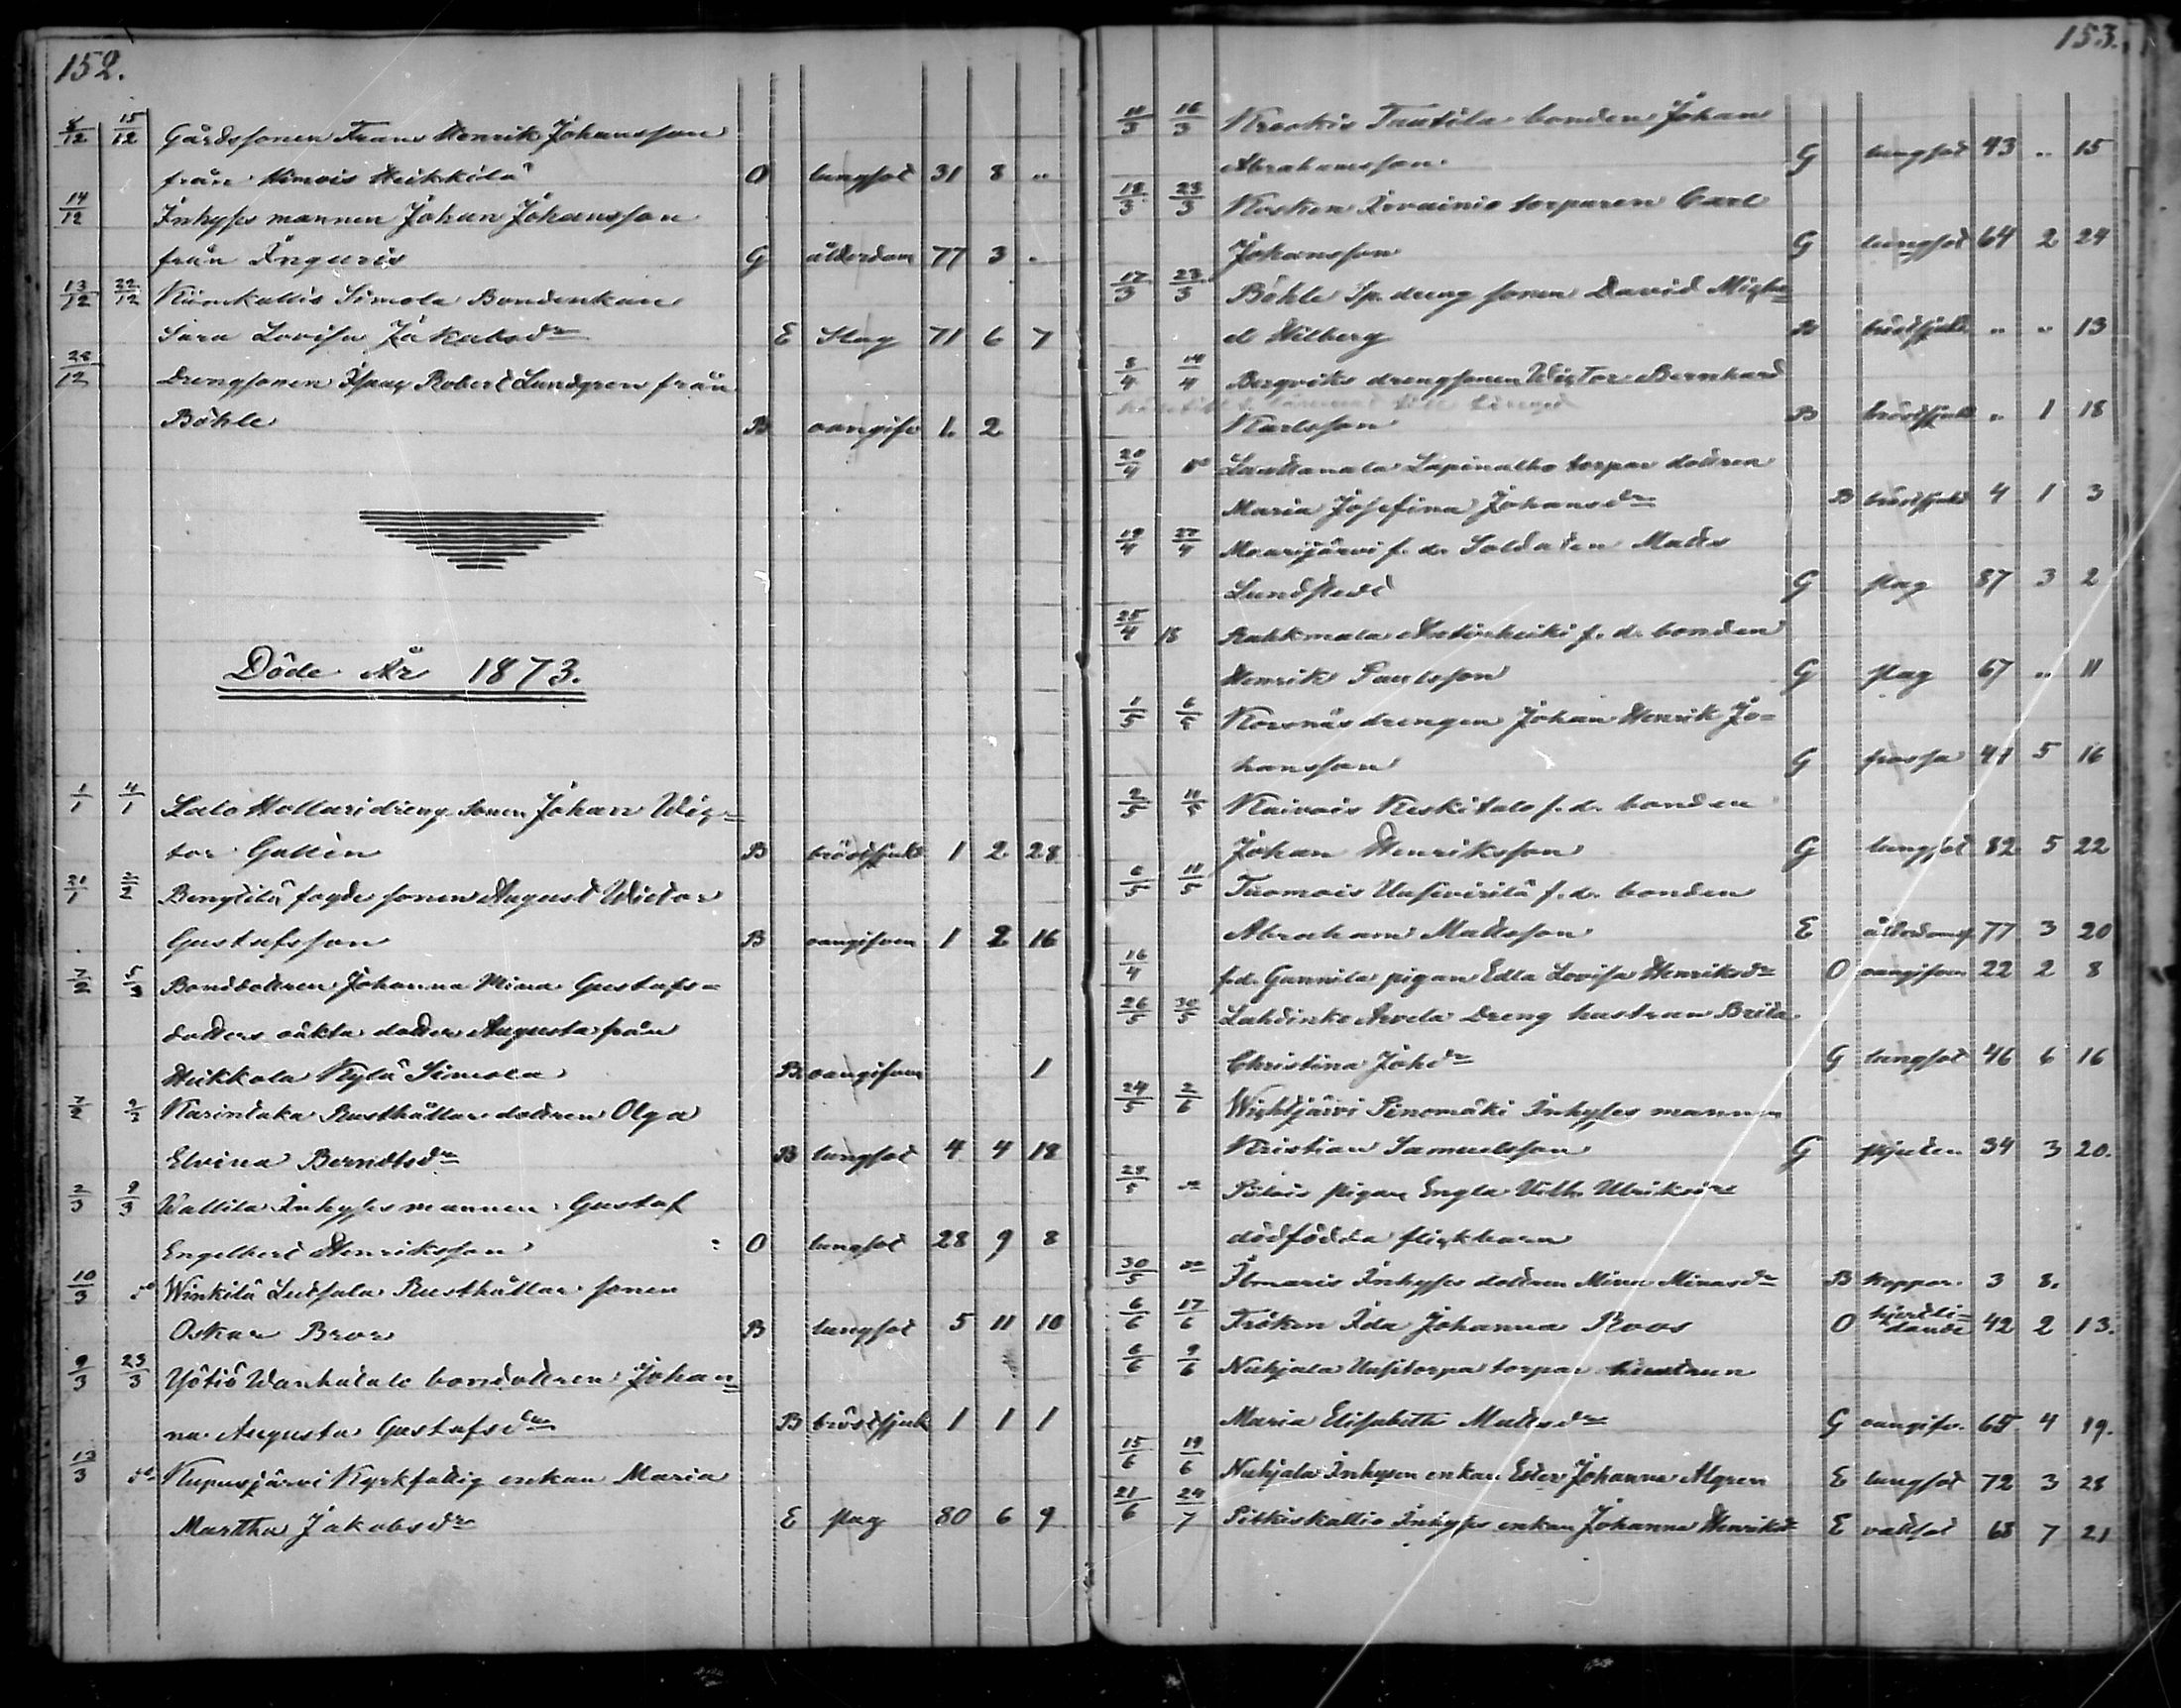 152.
8/12 15/12 Gårdssonen Frans Henrik Johansson
från Himois Heikkilä O lungsot 31 8 "
14/12 Inhysses mannen Johan Johansson
från Inguris G ålderdom 77 3 "
13/12 22/12 Simola Bondenkan
Sara Lovisa Jakobsdr E Slag 71 6 7
28/12 Drengsonen Isaac Robert Lundgren från
Böhle B oangifv 1 2
Döde År 1873.
1/1 4/1 Salo Hollari dreng sonen Johan Wic=
tor Gallén B bröstsjukd 1 2 28
21/1 2/2 Bengtilä fogde sonen August Victor
Gustafsson B oangifven 1 2 16
7/2 5/3 Bonddottren Johanna Mina Gustafs=
dotters oäkta dotter Augusta från
Heikkola Kylä Simola B oangifven 1
7/2 2/3 Karintaka Rusthållare dottren Olga
Elvina Berndtsdr B lungsot 4 4 18
2/3 9/3 Wallila Inhysses mannen Gustaf
Engelbert Henriksson O lungsot 28 9 8
10/3 do Winkilä Rusthållar sonen
Oskar Bror B lungsot 5 11 10
9/3 23/3 Yötiö Wanhatalo bondottren Johan=
na Augusta Gustafsdr B bröstsjuk 1 1 1
13/3 do Kupusjärvi Kyrkfattig enkan Maria
Martha Jakobsdr E slag 80 6 9
153.
11/3 16/3 Krookis Tautila bonden Johan
Abrahamsson G lungsot 43 " 15
18/3 23/3 Kosken torparen Carl
Johansson G lungsot 64 2 24
17/3 23/3 Böhle Sp. dreng sonen David Micha=
el Wilberg B bröstsjukd " " 13
8/4 14/4 Bergviks drengsonen Victor Bernhard
Karlsson B bröstsjukd " 1 18
20/4 do Lapinalho torpar dottren
Maria Josefina Johansdr B bröstsjukd 4 1 3
19/4 27/4 Maarijärvi f. d. Soldaten Mats
Lundstedt G slag 87 3 2
25/4 18 Rahkmala Antinheiki f. d. bonden
Henrik Paulsson G slag 67 " 11
1/5 6/5 Korsnäs drengen Johan Henrik Jo=
hansson G frossa 41 5 16
2/5 11/5 Kaivois Keskitalo f. d. bonden
Johan Henriksson G lungsot 82 5 22
6/5 11/5 Tuomois f. d. bonden
Abraham Matsson E ålderdomsf 77 3 20
16/4 f.d. Gunnila pigan Edla Lovisa Henriksdr O oangifven 22 2 8
26/5 30/5 Lahdinko Arvela Dreng hustrun Brita
Christina Johdr G lungsot 46 6 16
24/5 2/6 Sinomäki Inhysses mannen
Kristian Samuelsson G skjuten 34 3 20.
28/5 do pigan Engla Vilh. Ulriksdrs
dödfödda flickbarn
30/5 do Ilmaris Inhysses dottren Mina Minasdr B koppor. 3 8.
6/6 17/6 Fröken Ida Johanna Roos O hjertli=
dande 42 2 13.
6/6 9/6 Nuhjala Uusitorpa torpar hustrun
Maria Elisabeth Matsdr G oangifv. 65 4 19.
15/6 19/6 Nuhjala Inhyses enkan Ester Johanna Algren E lungsot 72 3 28
21/6 24/7 Pitkiskallio Inhyses enkan Johanna Henriksdr E vattsot 68 7 21